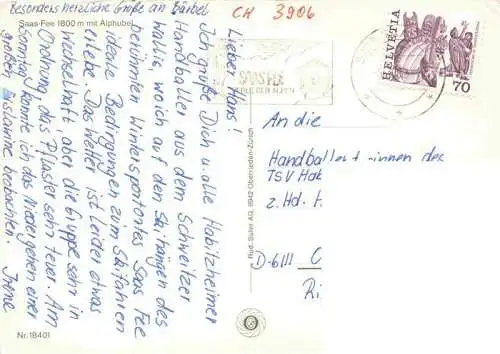 Besonders herzliche Grüße an Bärbel
CH 3906
Saas-Fee 1800 m mit Alphubel
Lieber Hans!
Ich grüße Dich u. alle Habitzheimer
Handballer aus dem Schweizer
Wallis, wo ich auf den Skihängen des
berühmten Wintersportortes Saas Fee
ideale Bedingungen zum Skifahren
erlebe. Das Wetter ist leider etwas
wechselhaft, aber die Gruppe sehr in
Ordnung, das Pflaster sehr teuer. Am
Sonntag konnte ich das Niedergehen einer
großen Lawine beobachten. Irene
Nr. 18401
Rud. Suter AG, 8942 Oberrieden-Zürich
SAAS FEE
PERLE DER ALPEN
HELVETIA
70
An die
Handballer + -innen des
TSV Hab
z. Hd. H
D-6111 O
Ri